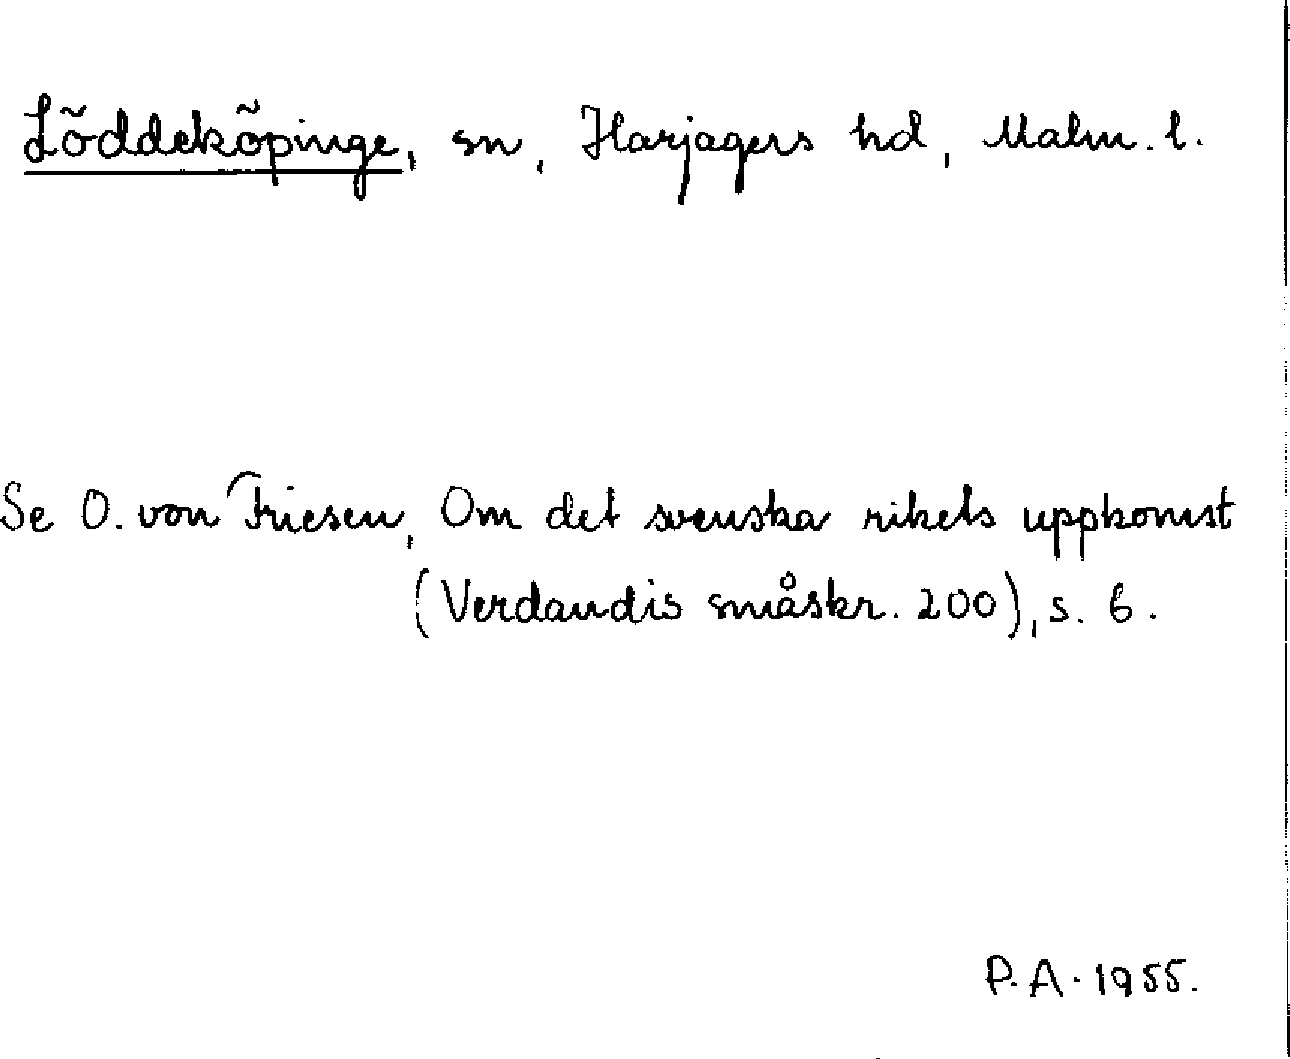 Löddeköpinge, sn, Harjagers hd, Malm. l.
Se O. von Friesen, Om det svenska rikets uppkomst
(Verdandis småskr. 200), s. 6.
P. A. 1955.